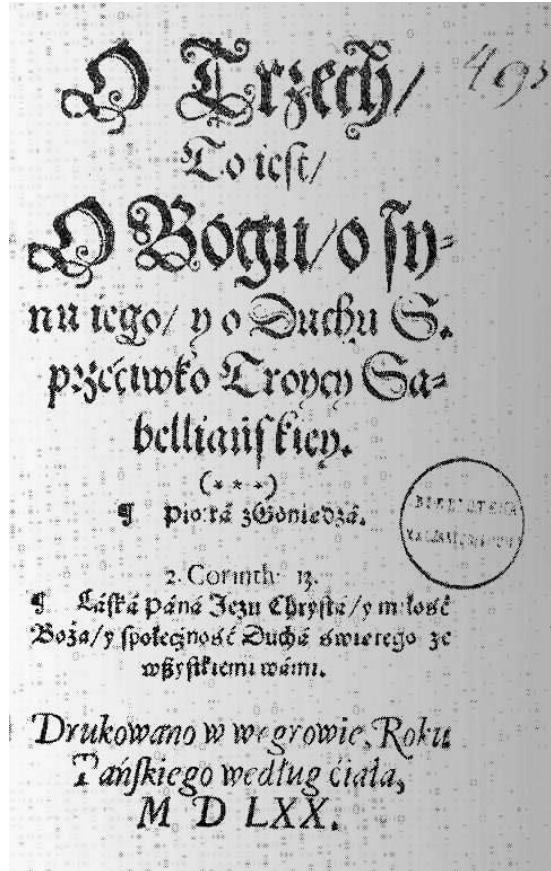 O Trzech/
To iest/
O Bogu/ o sy=
nu iego/ y o Duchu S.
przećiwko Troycy Sa=
belliańskiey.
(* * *)
¶ Piotrá z Goniądzá.
2. Corinth. 13.
¶ Łáská Páná Jezu Chrystá/ y miłość
Boża/ y społeczność Duchá świętego ze
wszystkiemi wámi.
Drukowano w węgrowie, Roku
Pańskiego według ćiała,
M D LXX.